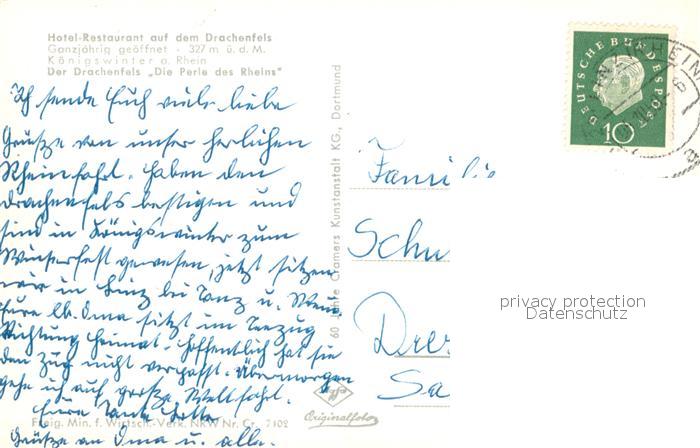 Hotel-Restaurant auf dem Drachenfels
Ganzjährig geöffnet · 327 m ü. d. M.
Königswinter a. Rhein
Der Drachenfels „Die Perle des Rheins"
Ich sende Euch viele liebe
Grüsze von unser herlichen
Rheinfahrt. Haben den
Drachenfels bestigen und
sind in Königswinter zum
Winzerfest gewesen, jetzt sitzen
wir in Linz bei Tanz u. Wein.
Eure lb. Oma sitzt im
Richtung Heimat. Hoffentlich hat sie
den Zug nicht verpasst. Übermorgen
gehe ich auf grosze Weltfahrt.
Eure Tante Lotte
Freig. Min. f. Wirtsch.-Verk. NRW Nr. Cr. 7102
Grüsze an Oma u. alle.
60 Jahre Cramers Kunstanstalt KG, Dortmund
Agfa
Originalfoto
DEUTSCHE BUNDESPOST
10
Famili
Schu
Dres
Sa
privacy protection
Datenschutz